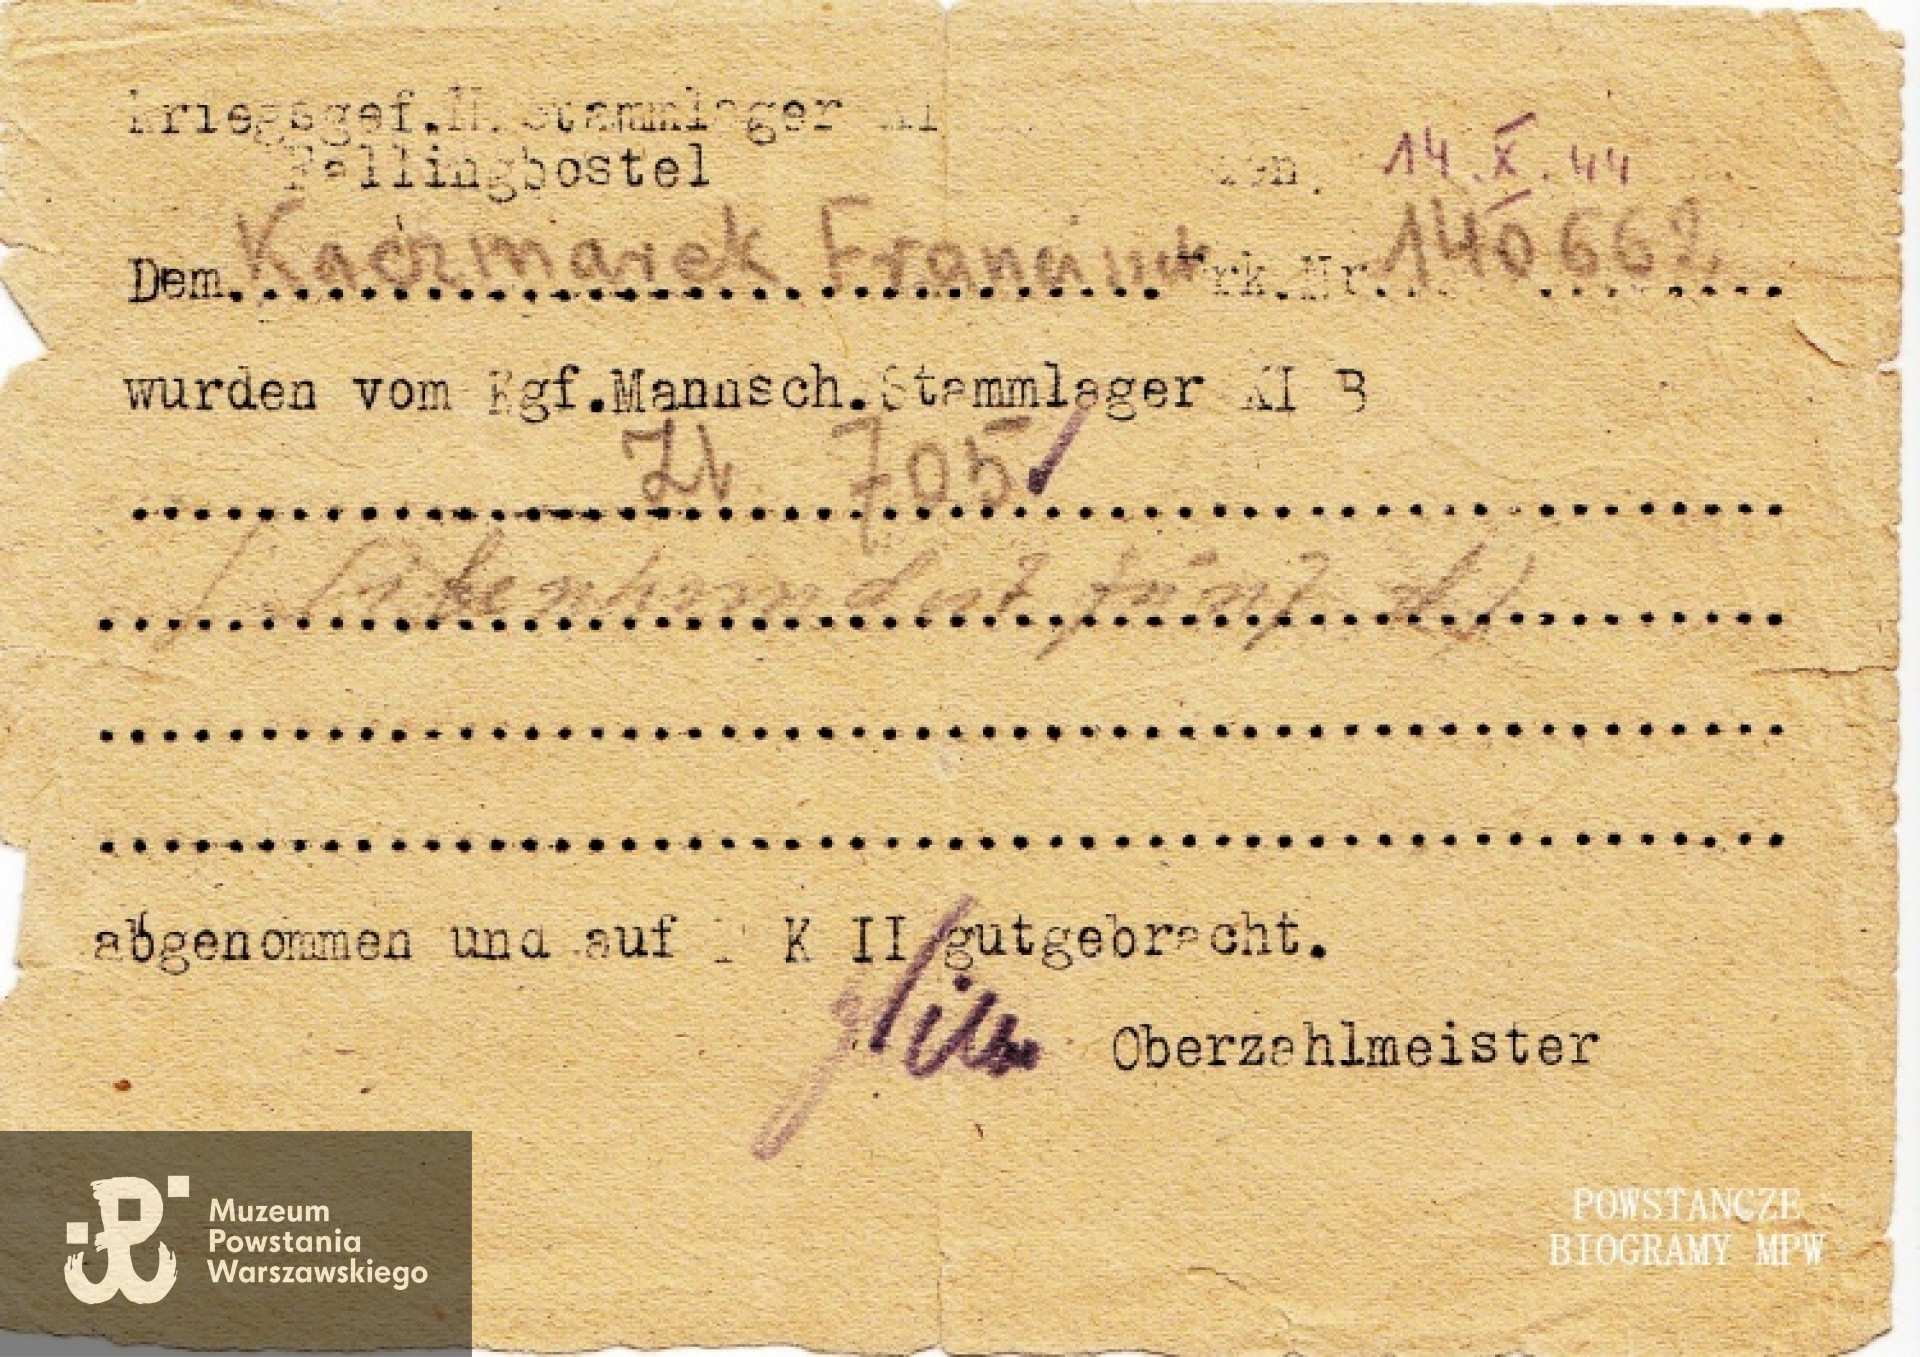 Kriegsgef.M.Stammlager XI
Fallingbostel
den. 14.X.44
Dem Kaczmarek Franciszek Erk.Nr. 140662
wurden vom Kgf.Mannsch.Stammlager XI B
Zł. 705
(Siebenhundert fünf zł)
abgenommen und auf K II gutgebracht.
Oberzahlmeister
Muzeum
Powstania
Warszawskiego
POWSTAŃCZE
BIOGRAMY MPW